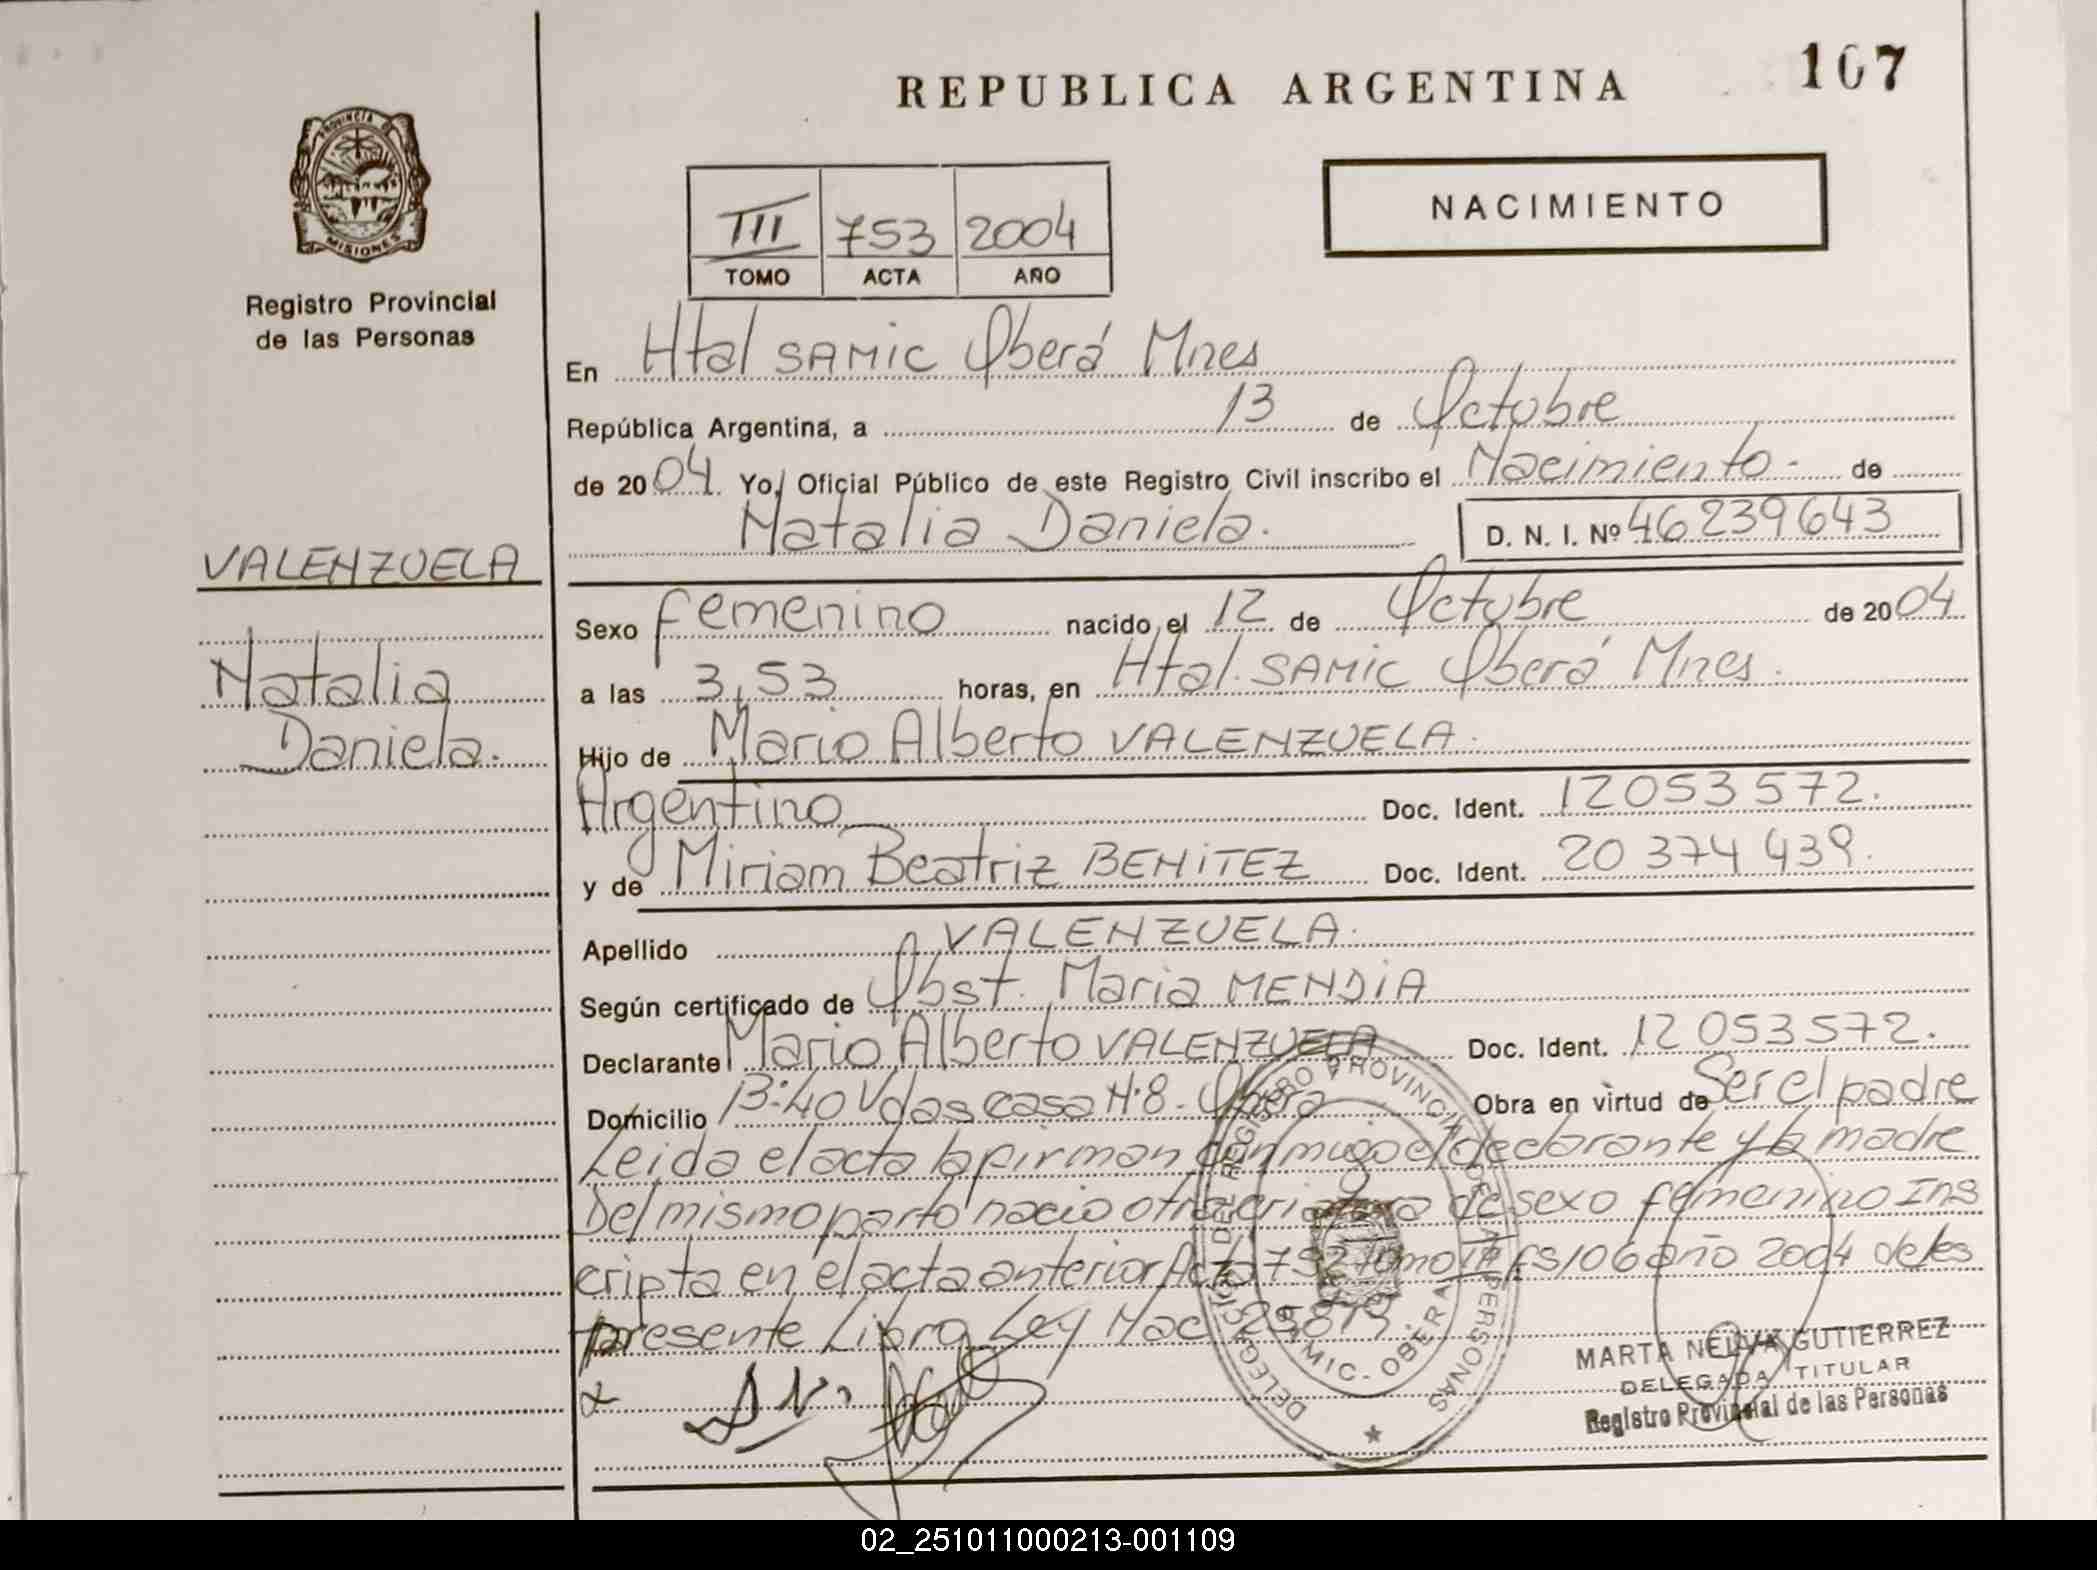 REPUBLICA ARGENTINA
107
PROVINCIA DE
MISIONES
Registro Provincial
de las Personas
III 753 2004
TOMO ACTA AÑO
NACIMIENTO
En Htal SAMIC Oberá Mnes
República Argentina, a 13 de Octubre
de 2004. Yo, Oficial Público de este Registro Civil inscribo el Nacimiento- de
Natalia Daniela.
D. N. I. Nº 46239643
VALENZUELA
Natalia
Daniela.
Sexo femenino nacido el 12 de Octubre de 2004
a las 3,53 horas, en Htal. SAMIC Oberá Mnes.
Hijo de Mario Alberto VALENZUELA.
Argentino Doc. Ident. 12053572.
y de Miriam Beatriz BENITEZ Doc. Ident. 20374439.
Apellido VALENZUELA.
Según certificado de Obst. Maria MENDIA
Declarante Mario Alberto VALENZUELA Doc. Ident. 12053572.
Domicilio B:40 Vdas casa N:8- Oberá Obra en virtud de Ser el padre
Leida el acta la firman conmigo el declarante y la madre
Del mismo parto nacio otra criatura de sexo femenino Ins
cripta en el acta anterior Acta 752 Tomo III fs 106 año 2004 del
presente Libro Ley Nac 25819.
DELEGACION DEL REGISTRO PROVINCIAL DE LAS PERSONAS
SAMIC. OBERA
MARTA NELVA GUTIERREZ
DELEGADA TITULAR
Registro Provincial de las Personas
02_251011000213-001109